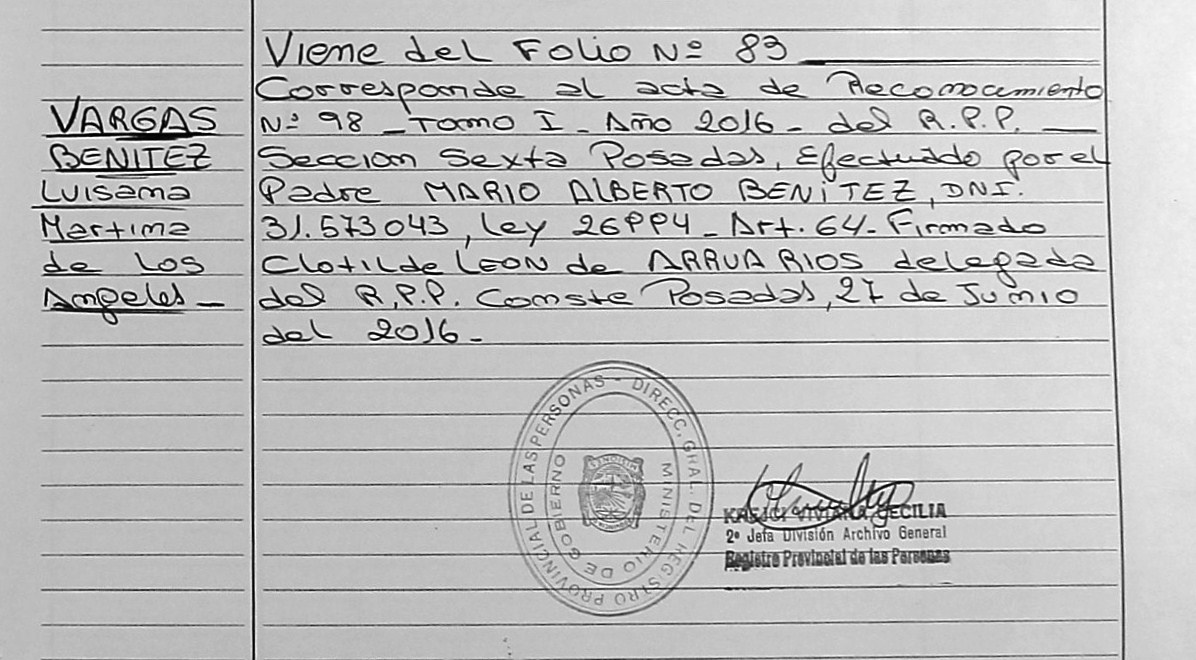 VARGAS
BENITEZ
Luisana
Martina
de Los
Angeles_
Viene del Folio Nº 83
Corresponde al acta de Reconocimiento
Nº 98 _ Tomo I _ Año 2016 _ del R.P.P.
Seccion Sexta Posadas, Efectuado por el
Padre MARIO ALBERTO BENiTEZ, DNI.
31.573043, Ley 26994_ Art. 64_ Firmado
Clotilde LEON de ARRUA RIOS delegada
del R.P.P. Conste Posadas, 27 de Junio
del 2016_
DIRECC. GRAL. DEL REGISTRO PROVINCIAL DE LAS PERSONAS -
MINISTERIO DE GOBIERNO
VIVIANA CECILIA
2º Jefa División Archivo General
Registro Provincial de las Personas